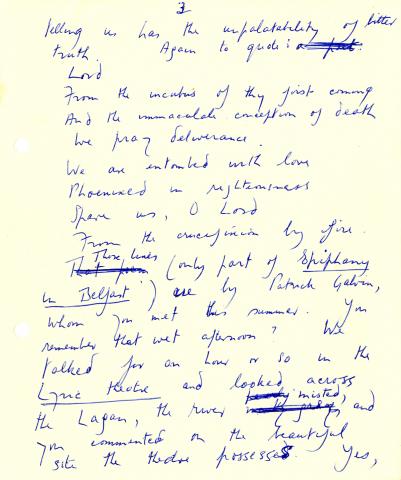 3
telling us has the unpalatability of bitter
truth. Again to quote:
Lord
From the incubus of thy first coming
And the immaculate conception of death
We pray deliverance.
We are entombed with love
Phoenixed in righteousness
Spare us, O Lord
From the crucifixion by fire.
Those lines
That poem (only part of Epiphany
in Belfast) are by Patrick Galvin,
whom you met this summer. You
remember that wet afternoon? We
talked for an hour or so in the
Lyric theatre and looked across
misted,
the Lagan, the river and
you commented on the beautiful
site the theatre possesses. Yes,